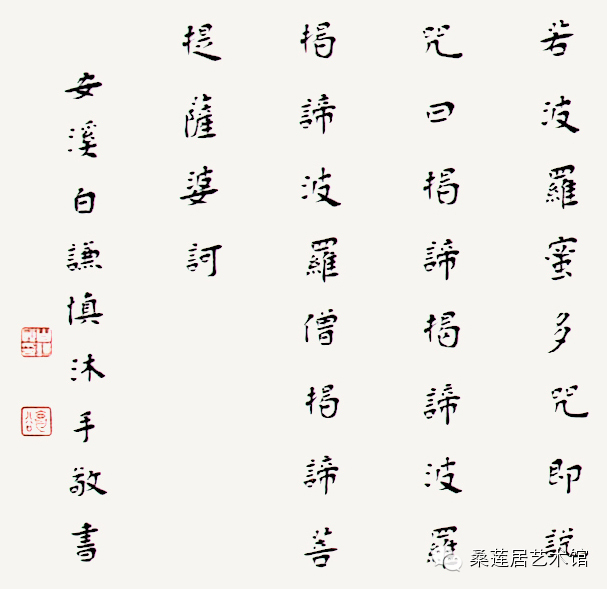 若波羅蜜多咒即說
咒曰揭諦揭諦波羅
揭諦波羅僧揭諦菩
提薩婆訶
安溪白謙慎沐手敬書
桑莲居艺术馆